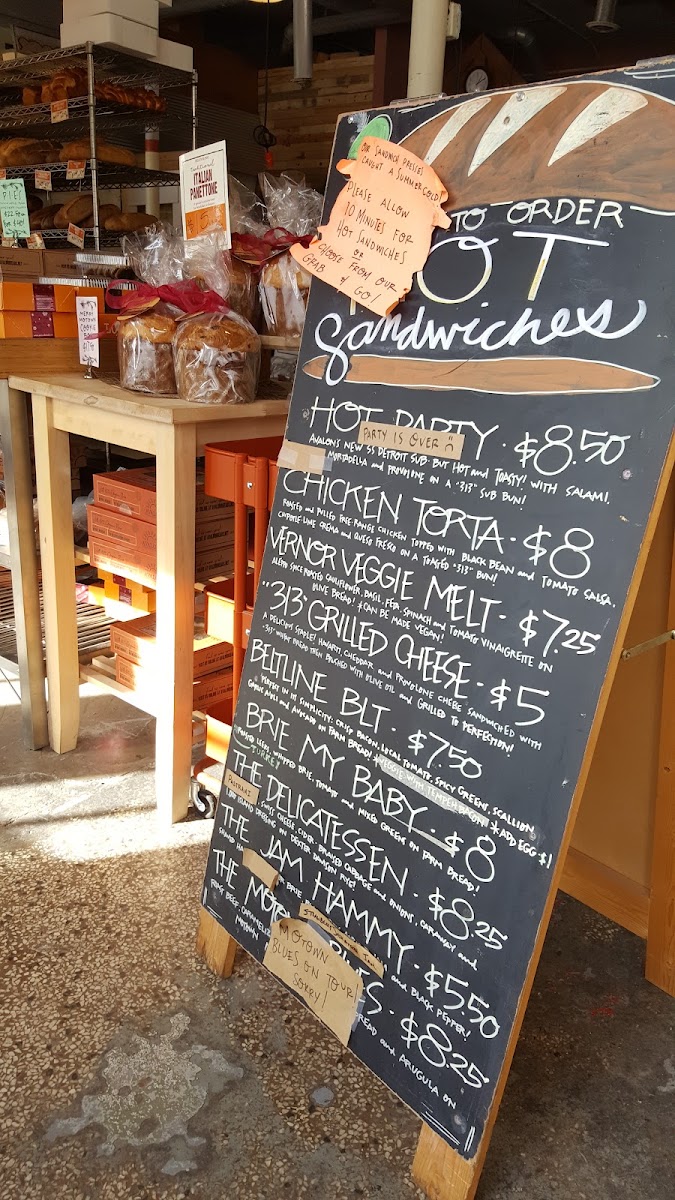 Traditional
ITALIAN
PANETTONE
PIE!
OUR SANDWICH PRESSES
CAUGHT A SUMMER COLD
PLEASE ALLOW
10 MINUTES FOR
HOT SANDWICHES
OR
CHOOSE FROM OUR
GRAB & GO!
TO ORDER
HOT
Sandwiches
HOT PARTY · $8.50
PARTY IS OVER
AVALON'S NEW $5 DETROIT SUB - BUT HOT and TOASTY! WITH SALAMI,
MORTADELLA and PROVOLONE ON A "313" SUB BUN!
CHICKEN TORTA · $8
ROASTED and PULLED FREE-RANGE CHICKEN TOPPED WITH BLACK BEAN and TOMATO SALSA,
CHIPOTLE-LIME CREMA and QUESO FRESCO ON A TOASTED "313" BUN!
VERNOR VEGGIE MELT · $7.25
ALEPPO SPICE ROASTED CAULIFLOWER, BASIL, FETA, SPINACH and TOMATO VINAIGRETTE ON
OLIVE BREAD! *CAN BE MADE VEGAN!
"313" GRILLED CHEESE · $5
A DELICIOUS STAPLE! HAVARTI, CHEDDAR and PROVOLONE CHEESE SANDWICHED WITH
"313" WHEAT BREAD THEN BRUSHED WITH OLIVE OIL and GRILLED TO PERFECTION!
BELTLINE BLT · $7.50
PERFECT IN ITS SIMPLICITY: CRISP BACON, LOCAL TOMATO, SPICY GREENS, SCALLION
GARLIC AIOLI and AVOCADO ON FARM BREAD! *VEGGIE WITH TEMPEH BACON! *ADD EGG $1
BRIE MY BABY · $8
ROASTED LEEKS, WHIPPED BRIE, TOMATO and MIXED GREENS ON FARM BREAD!
TURKEY
THE DELICATESSEN · $8.25
PASTRAMI
SWISS CHEESE, CIDER-BRAISED CABBAGE and ONIONS, CARAWAY and
1000 ISLAND DRESSING ON DEXTER DAVISON RYE!
THE JAM HAMMY · $5.50
SHAVED
BRIE
and BLACK PEPPER!
THE MOTOWN BLUES · $8.25
ROAST BEEF, CARAMELIZED
BREAD and ARUGULA ON
MOTOWN
MOTOWN
BLUES ON TOUR!
SORRY!